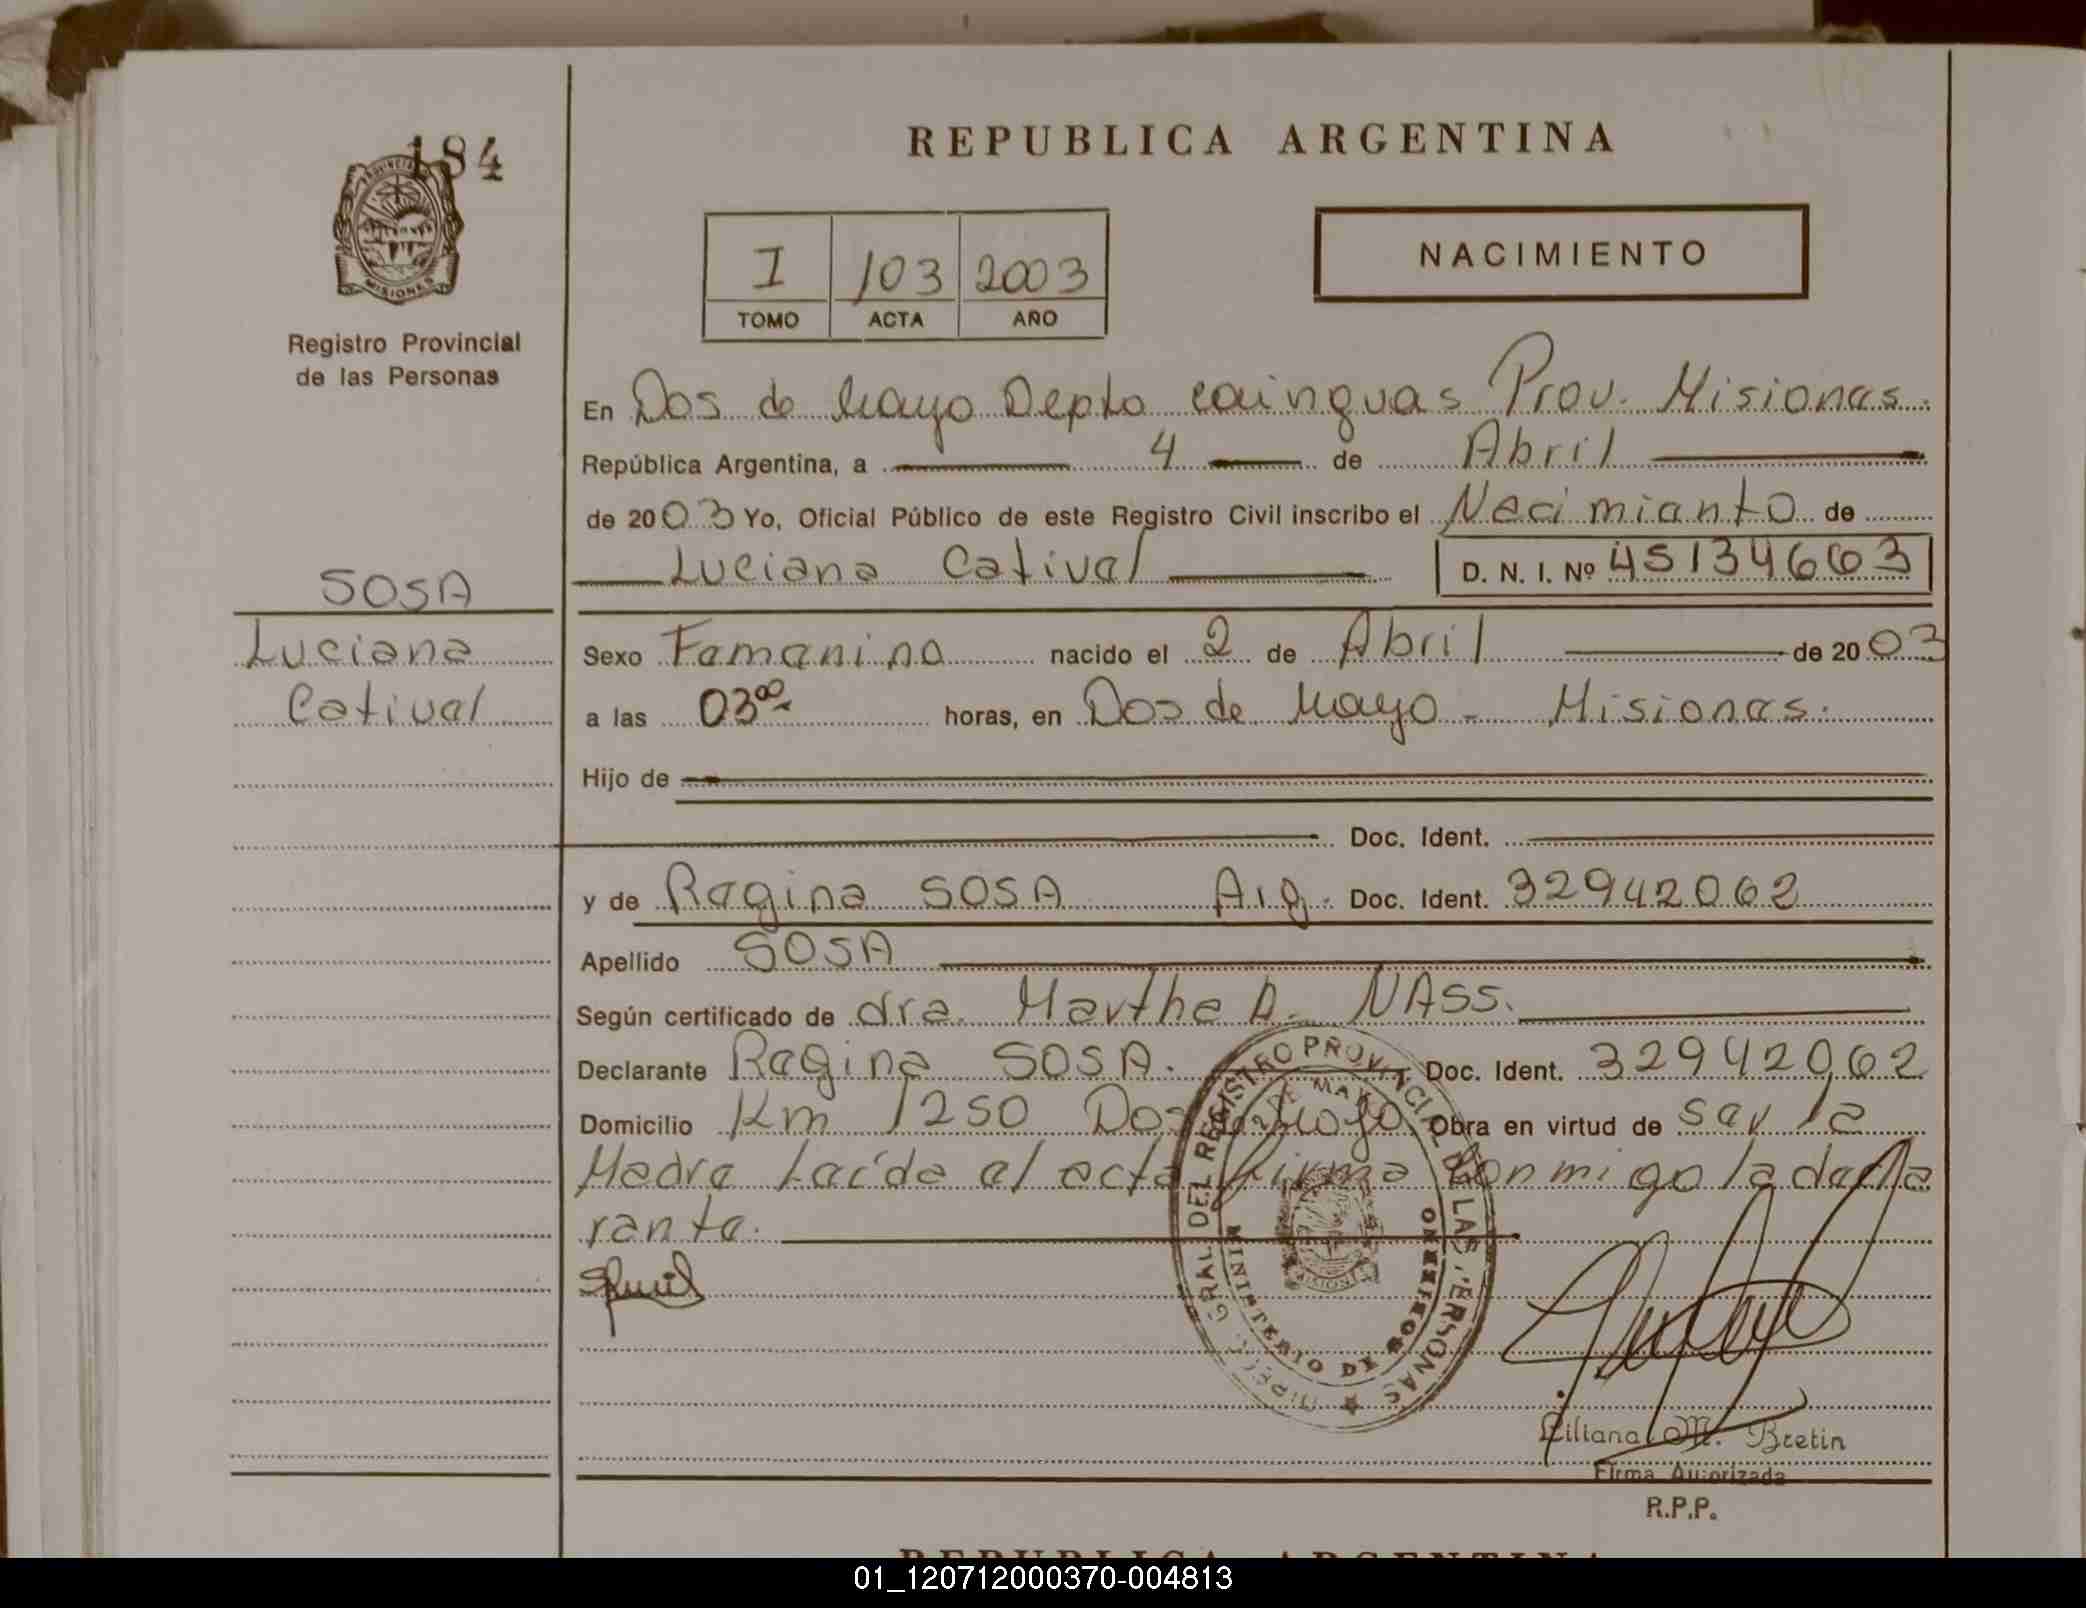 184
PROVINCIA
MISIONES
Registro Provincial
de las Personas
SOSA
Luciana
Catival
REPUBLICA ARGENTINA
NACIMIENTO
I 103 2003
TOMO ACTA AÑO
En Dos de Mayo Depto cainguas Prov. Misiones.
República Argentina, a 4 de Abril
de 2003 Yo, Oficial Público de este Registro Civil inscribo el Nacimiento de
Luciana Catival D. N. I. Nº 45134663
Sexo Femenino nacido el 2 de Abril de 2003
a las 03⁰⁰ horas, en Dos de Mayo - Misiones.
Hijo de
Doc. Ident.
y de Regina SOSA Arg. Doc. Ident. 32942062
Apellido SOSA
Según certificado de dra. Martha A. NASS.
Declarante Regina SOSA. Doc. Ident. 32942062
Domicilio Km 1250 Dos de Mayo Obra en virtud de ser la
Madre Leída el acta firma conmigo la decla
rante.
DIREC. GRAL DEL REGISTRO PROVINCIAL DE LAS PERSONAS
2 DE MAYO
MINISTERIO DE GOBIERNO
MISIONES
Liliana M. Bretin
Firma Autorizada
R.P.P.
REPUBLICA ARGENTINA
01_120712000370-004813